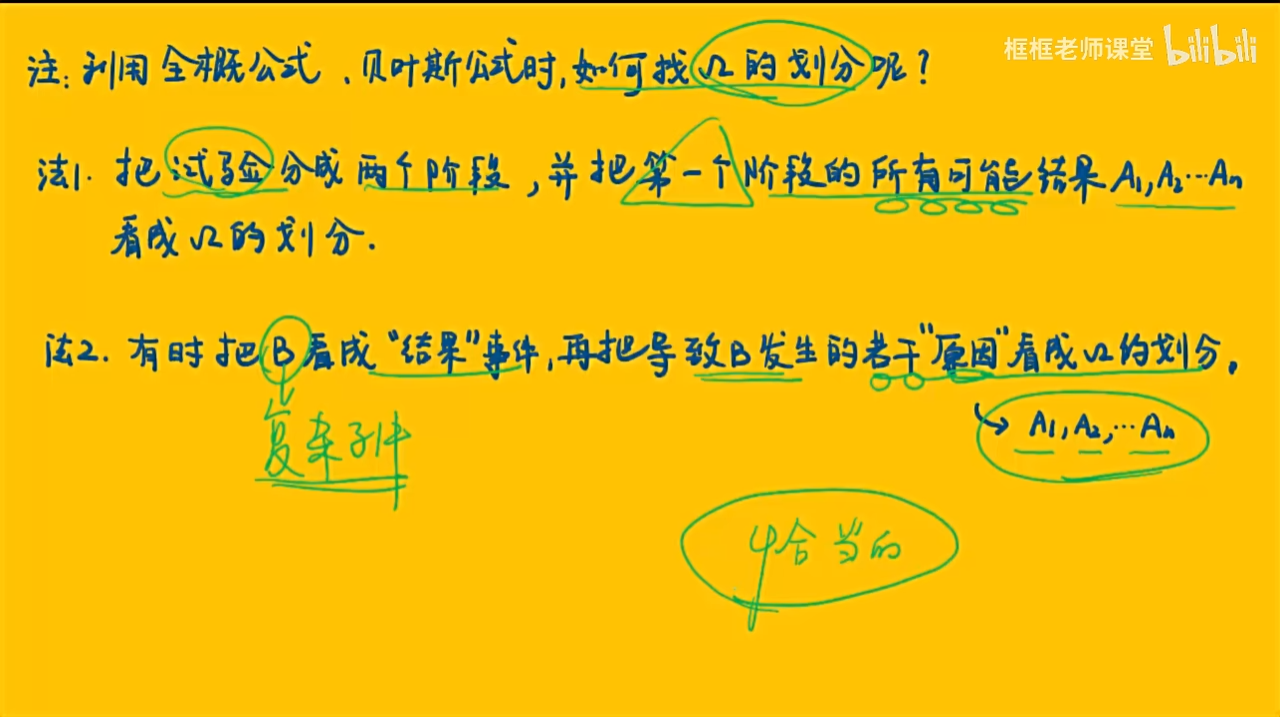 框框老师课堂 bilibili
注：利用全概公式、贝叶斯公式时，如何找Ω的划分呢？
法1. 把试验分成两个阶段，并把第一个阶段的所有可能结果A₁,A₂…Aₙ
看成Ω的划分.
法2. 有时把B看成“结果”事件，再把导致B发生的若干“原因”看成Ω的划分.
A₁,A₂,…Aₙ
复杂事件
恰当的